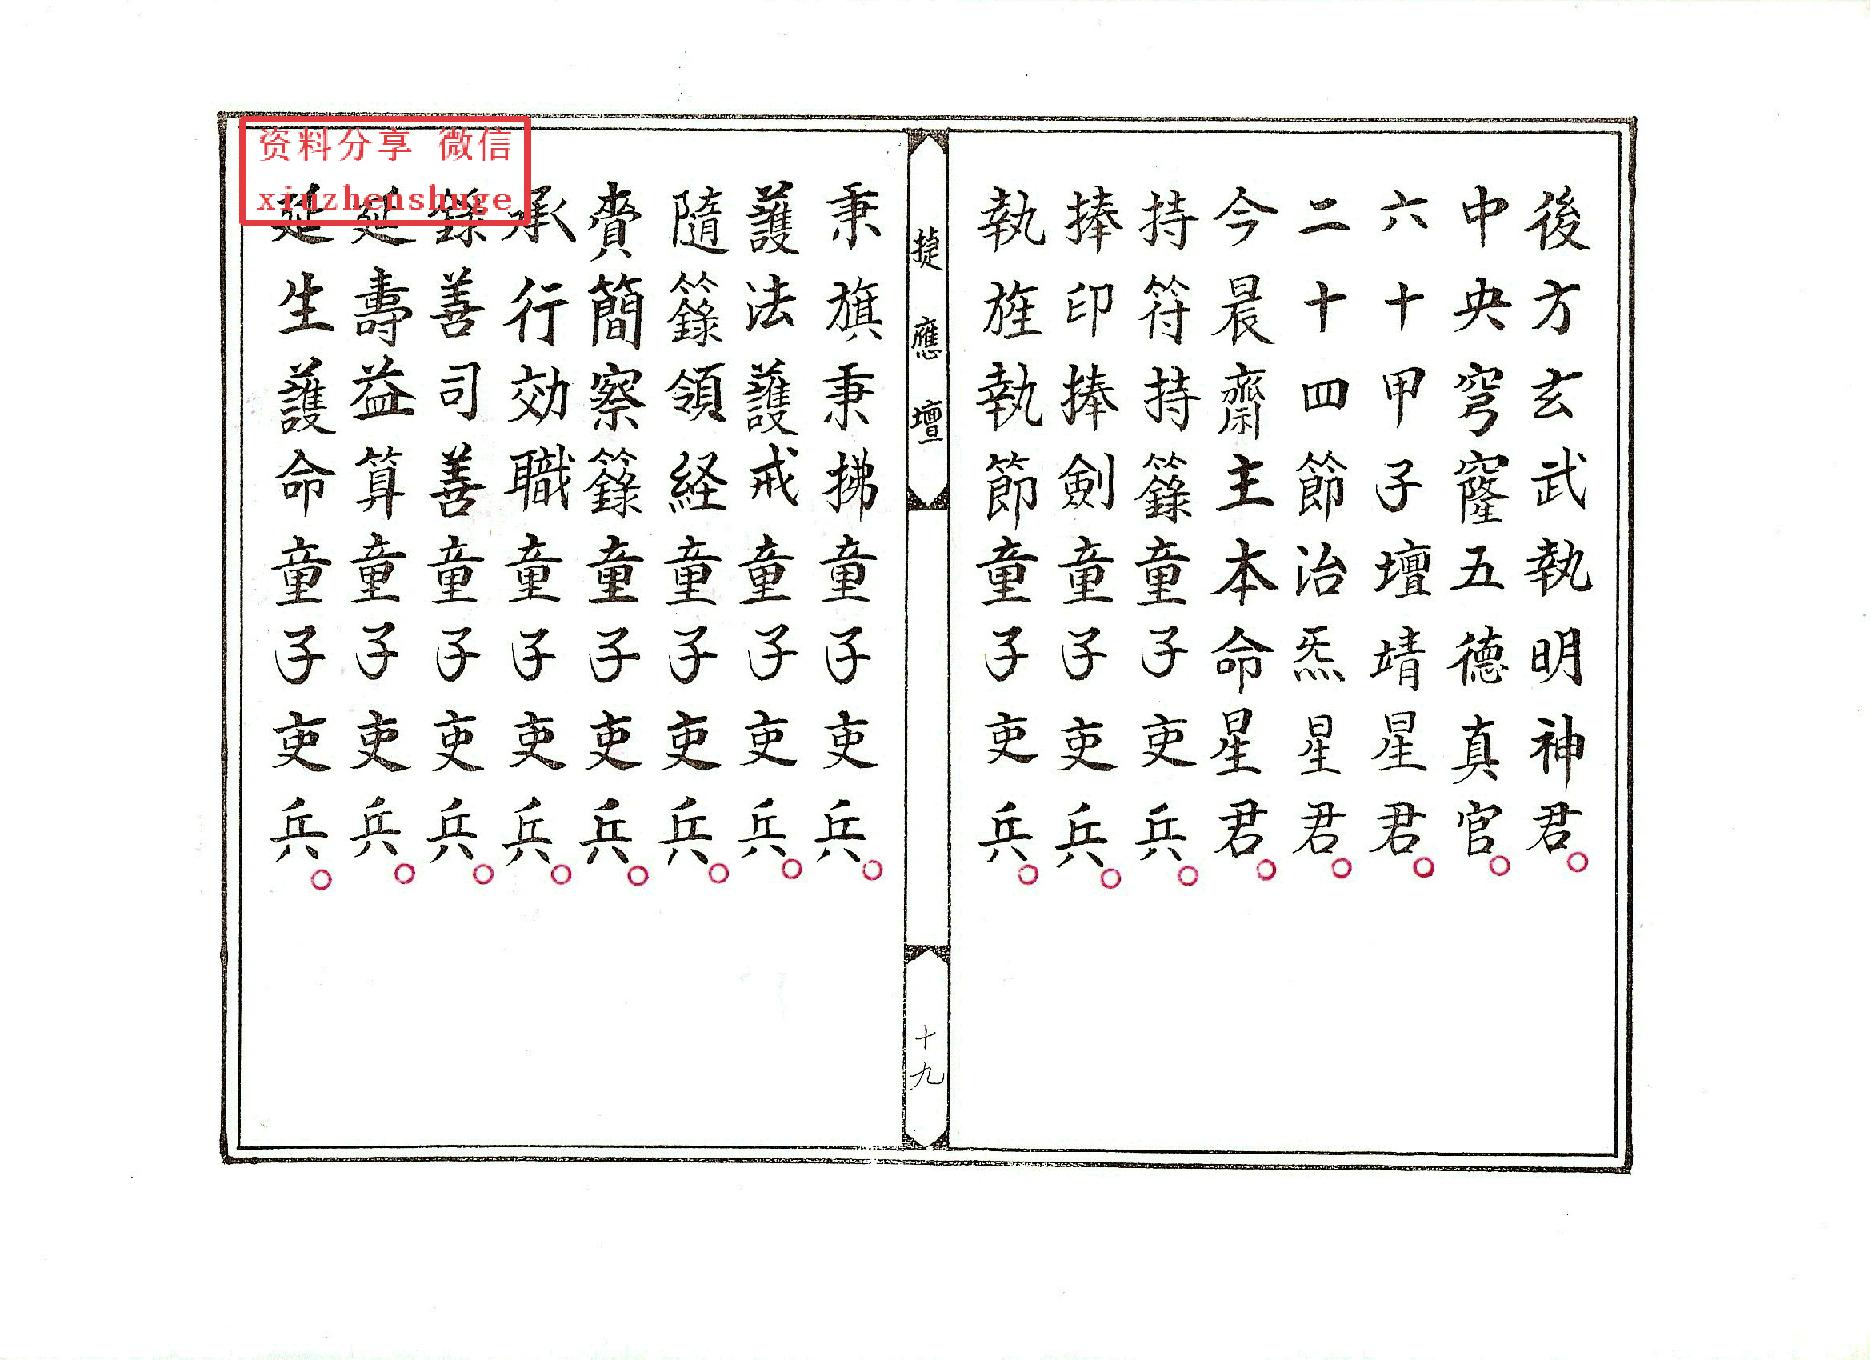 後方玄武執明神君。
中央穹窿五德真官。
六十甲子壇靖星君。
二十四節治炁星君。
今晨齋主本命星君。
持符持籙童子吏兵。
捧印捧劍童子吏兵。
執旌執節童子吏兵。
捷應壇
十九
秉旗秉拂童子吏兵。
護法護戒童子吏兵。
隨籙領経童子吏兵。
賫簡察籙童子吏兵。
承行効職童子吏兵。
錄善司善童子吏兵。
延壽益算童子吏兵。
延生護命童子吏兵。
资料分享 微信
xinzhenshuge